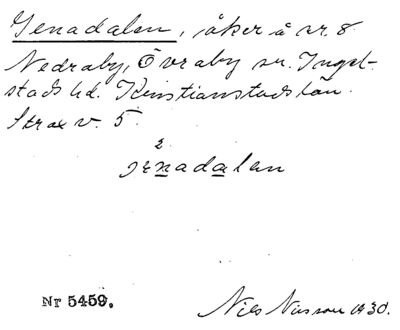 Jenadalen, åker å nr. 8
Nedraby, Övraby sn. Ingel-
stads hd. Kristianstads län.
Strax v. 5.
jenadalen
Nr 5459.
Nils Nilsson 1930.